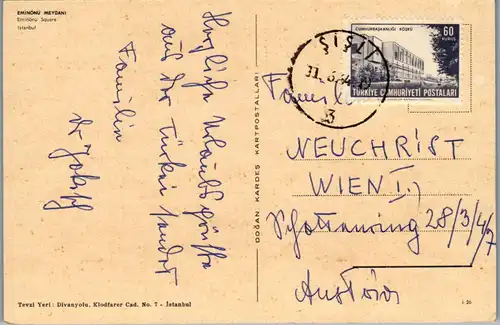 EMİNÖNÜ MEYDANI
Eminönü Square
İstanbul
Herzliche Urlaubsgrüße
aus der Türkei sendet
Familie
DOĞAN KARDEŞ KARTPOSTALLARI
CUMHURBAŞKANLIĞI KÖŞKÜ
60
KURUŞ
TÜRKİYE CUMHURİYETİ POSTALARI
ŞİŞLİ
3
Familie
NEUCHRIST
WIEN I.,
Schottenring 28/3/4/7
Austria
Tevzi Yeri: Divanyolu, Klodfarer Cad. No. 7 - İstanbul
i 26